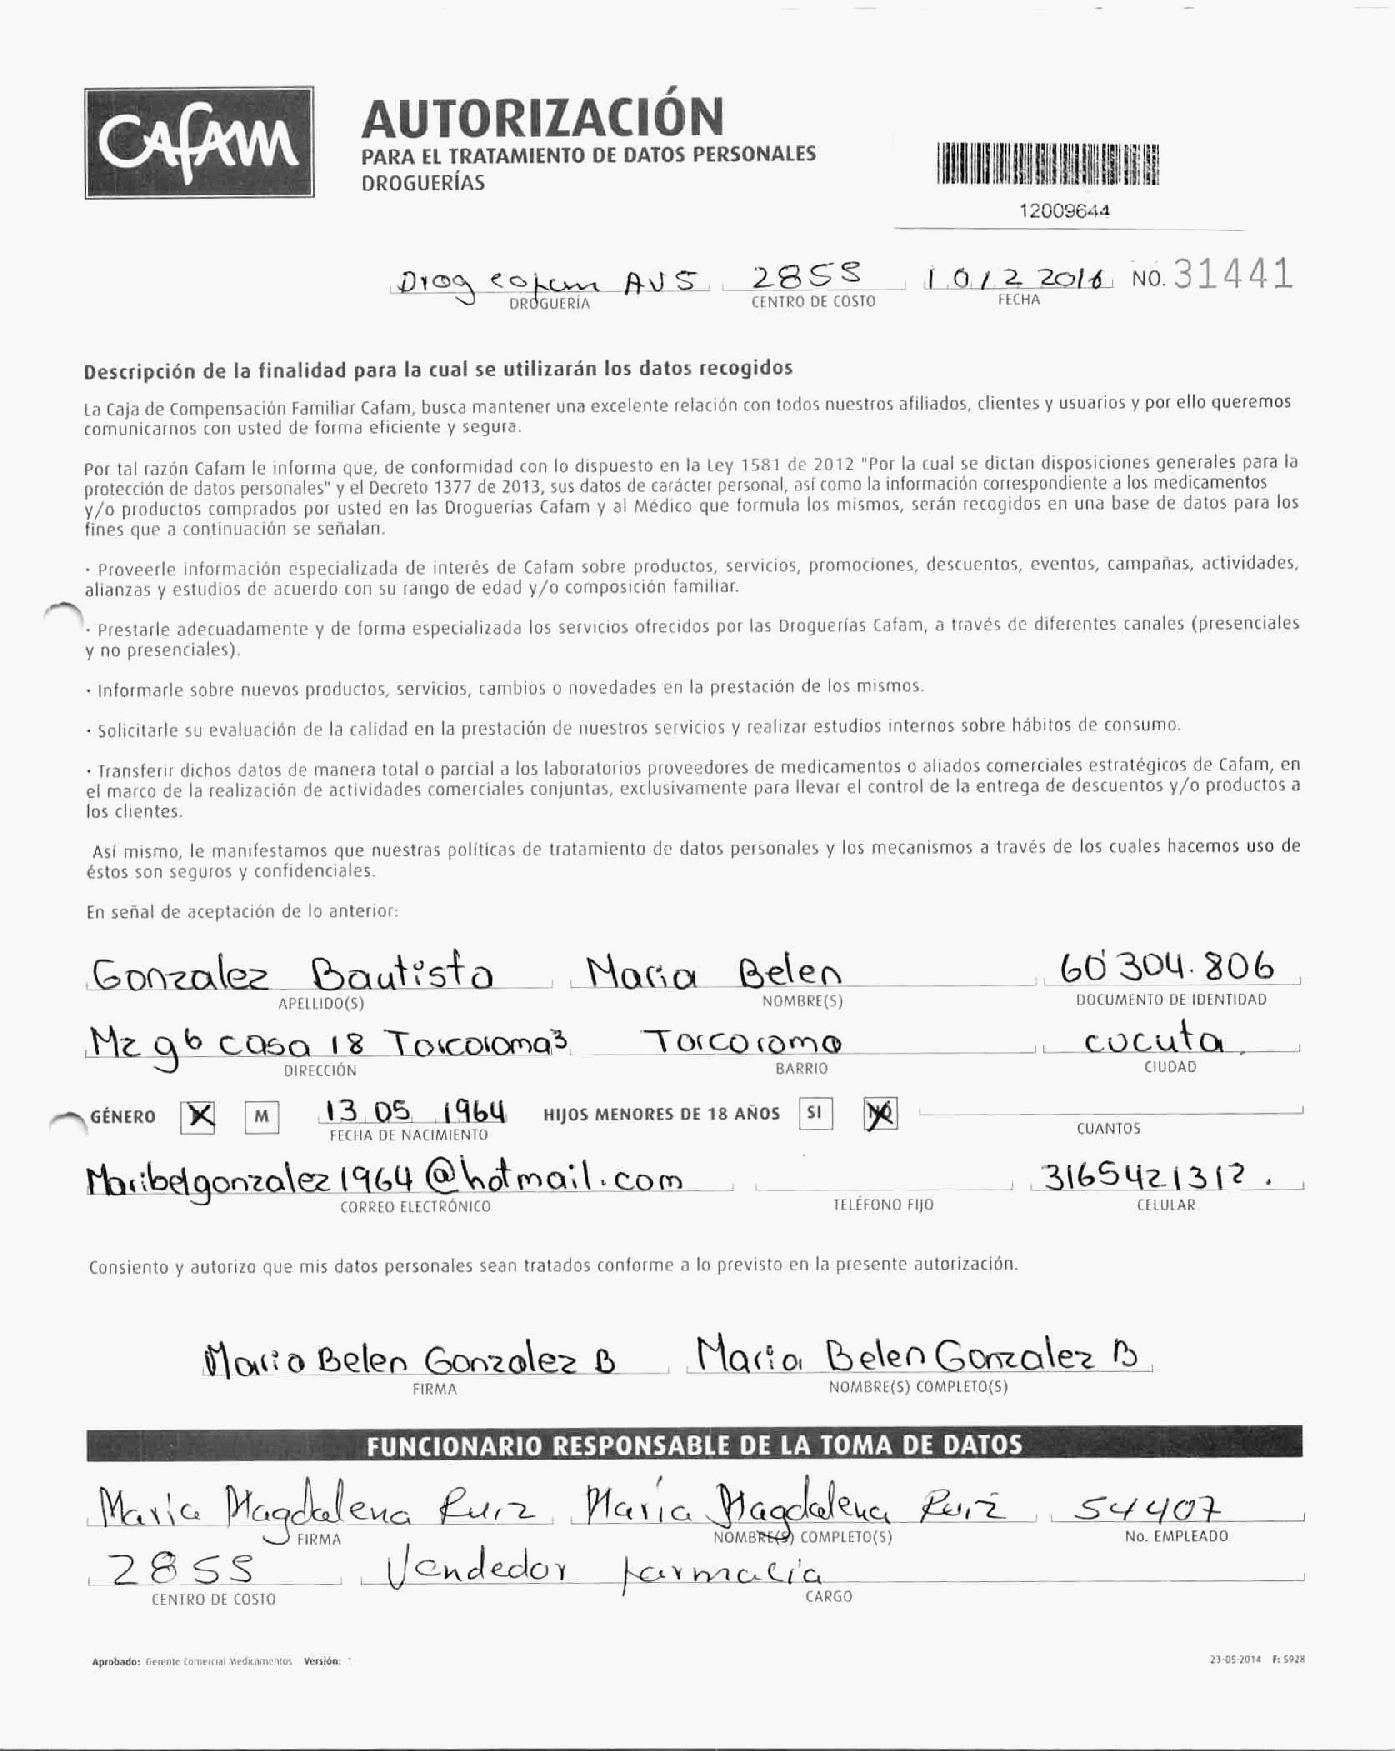 CAFAM
AUTORIZACIÓN
PARA EL TRATAMIENTO DE DATOS PERSONALES
DROGUERÍAS
12009644
Drog cafam AV5 2855 10/2 2016 NO. 31441
DROGUERÍA CENTRO DE COSTO FECHA
Descripción de la finalidad para la cual se utilizarán los datos recogidos
La Caja de Compensación Familiar Cafam, busca mantener una excelente relación con todos nuestros afiliados, clientes y usuarios y por ello queremos
comunicarnos con usted de forma eficiente y segura.
Por tal razón Cafam le informa que, de conformidad con lo dispuesto en la Ley 1581 de 2012 "Por la cual se dictan disposiciones generales para la
protección de datos personales" y el Decreto 1377 de 2013, sus datos de carácter personal, así como la información correspondiente a los medicamentos
y/o productos comprados por usted en las Droguerías Cafam y al Médico que formula los mismos, serán recogidos en una base de datos para los
fines que a continuación se señalan.
· Proveerle información especializada de interés de Cafam sobre productos, servicios, promociones, descuentos, eventos, campañas, actividades,
alianzas y estudios de acuerdo con su rango de edad y/o composición familiar.
· Prestarle adecuadamente y de forma especializada los servicios ofrecidos por las Droguerías Cafam, a través de diferentes canales (presenciales
y no presenciales).
· Informarle sobre nuevos productos, servicios, cambios o novedades en la prestación de los mismos.
· Solicitarle su evaluación de la calidad en la prestación de nuestros servicios y realizar estudios internos sobre hábitos de consumo.
· Transferir dichos datos de manera total o parcial a los laboratorios proveedores de medicamentos o aliados comerciales estratégicos de Cafam, en
el marco de la realización de actividades comerciales conjuntas, exclusivamente para llevar el control de la entrega de descuentos y/o productos a
los clientes.
Así mismo, le manifestamos que nuestras políticas de tratamiento de datos personales y los mecanismos a través de los cuales hacemos uso de
éstos son seguros y confidenciales.
En señal de aceptación de lo anterior:
Gonzalez Bautista Maria Belen 60'304.806
APELLIDO(S) NOMBRE(S) DOCUMENTO DE IDENTIDAD
Mz 9b casa 18 Torcoroma3 Torcoroma cucuta
DIRECCIÓN BARRIO CIUDAD
GÉNERO X M 13 05 1964 HIJOS MENORES DE 18 AÑOS SI NO
FECHA DE NACIMIENTO CUANTOS
Maribelgonzalez1964@hotmail.com 3165421312.
CORREO ELECTRÓNICO TELÉFONO FIJO CELULAR
Consiento y autorizo que mis datos personales sean tratados conforme a lo previsto en la presente autorización.
Maria Belen Gonzalez B Maria Belen Gonzalez B
FIRMA NOMBRE(S) COMPLETO(S)
FUNCIONARIO RESPONSABLE DE LA TOMA DE DATOS
Maria Magdalena Ruiz Maria Magdalena Ruiz 54407
FIRMA NOMBRE(S) COMPLETO(S) No. EMPLEADO
2855 Vendedor farmacia
CENTRO DE COSTO CARGO
Aprobado: Gerente Comercial Medicamentos Versión:
23-05-2014 F: 5928